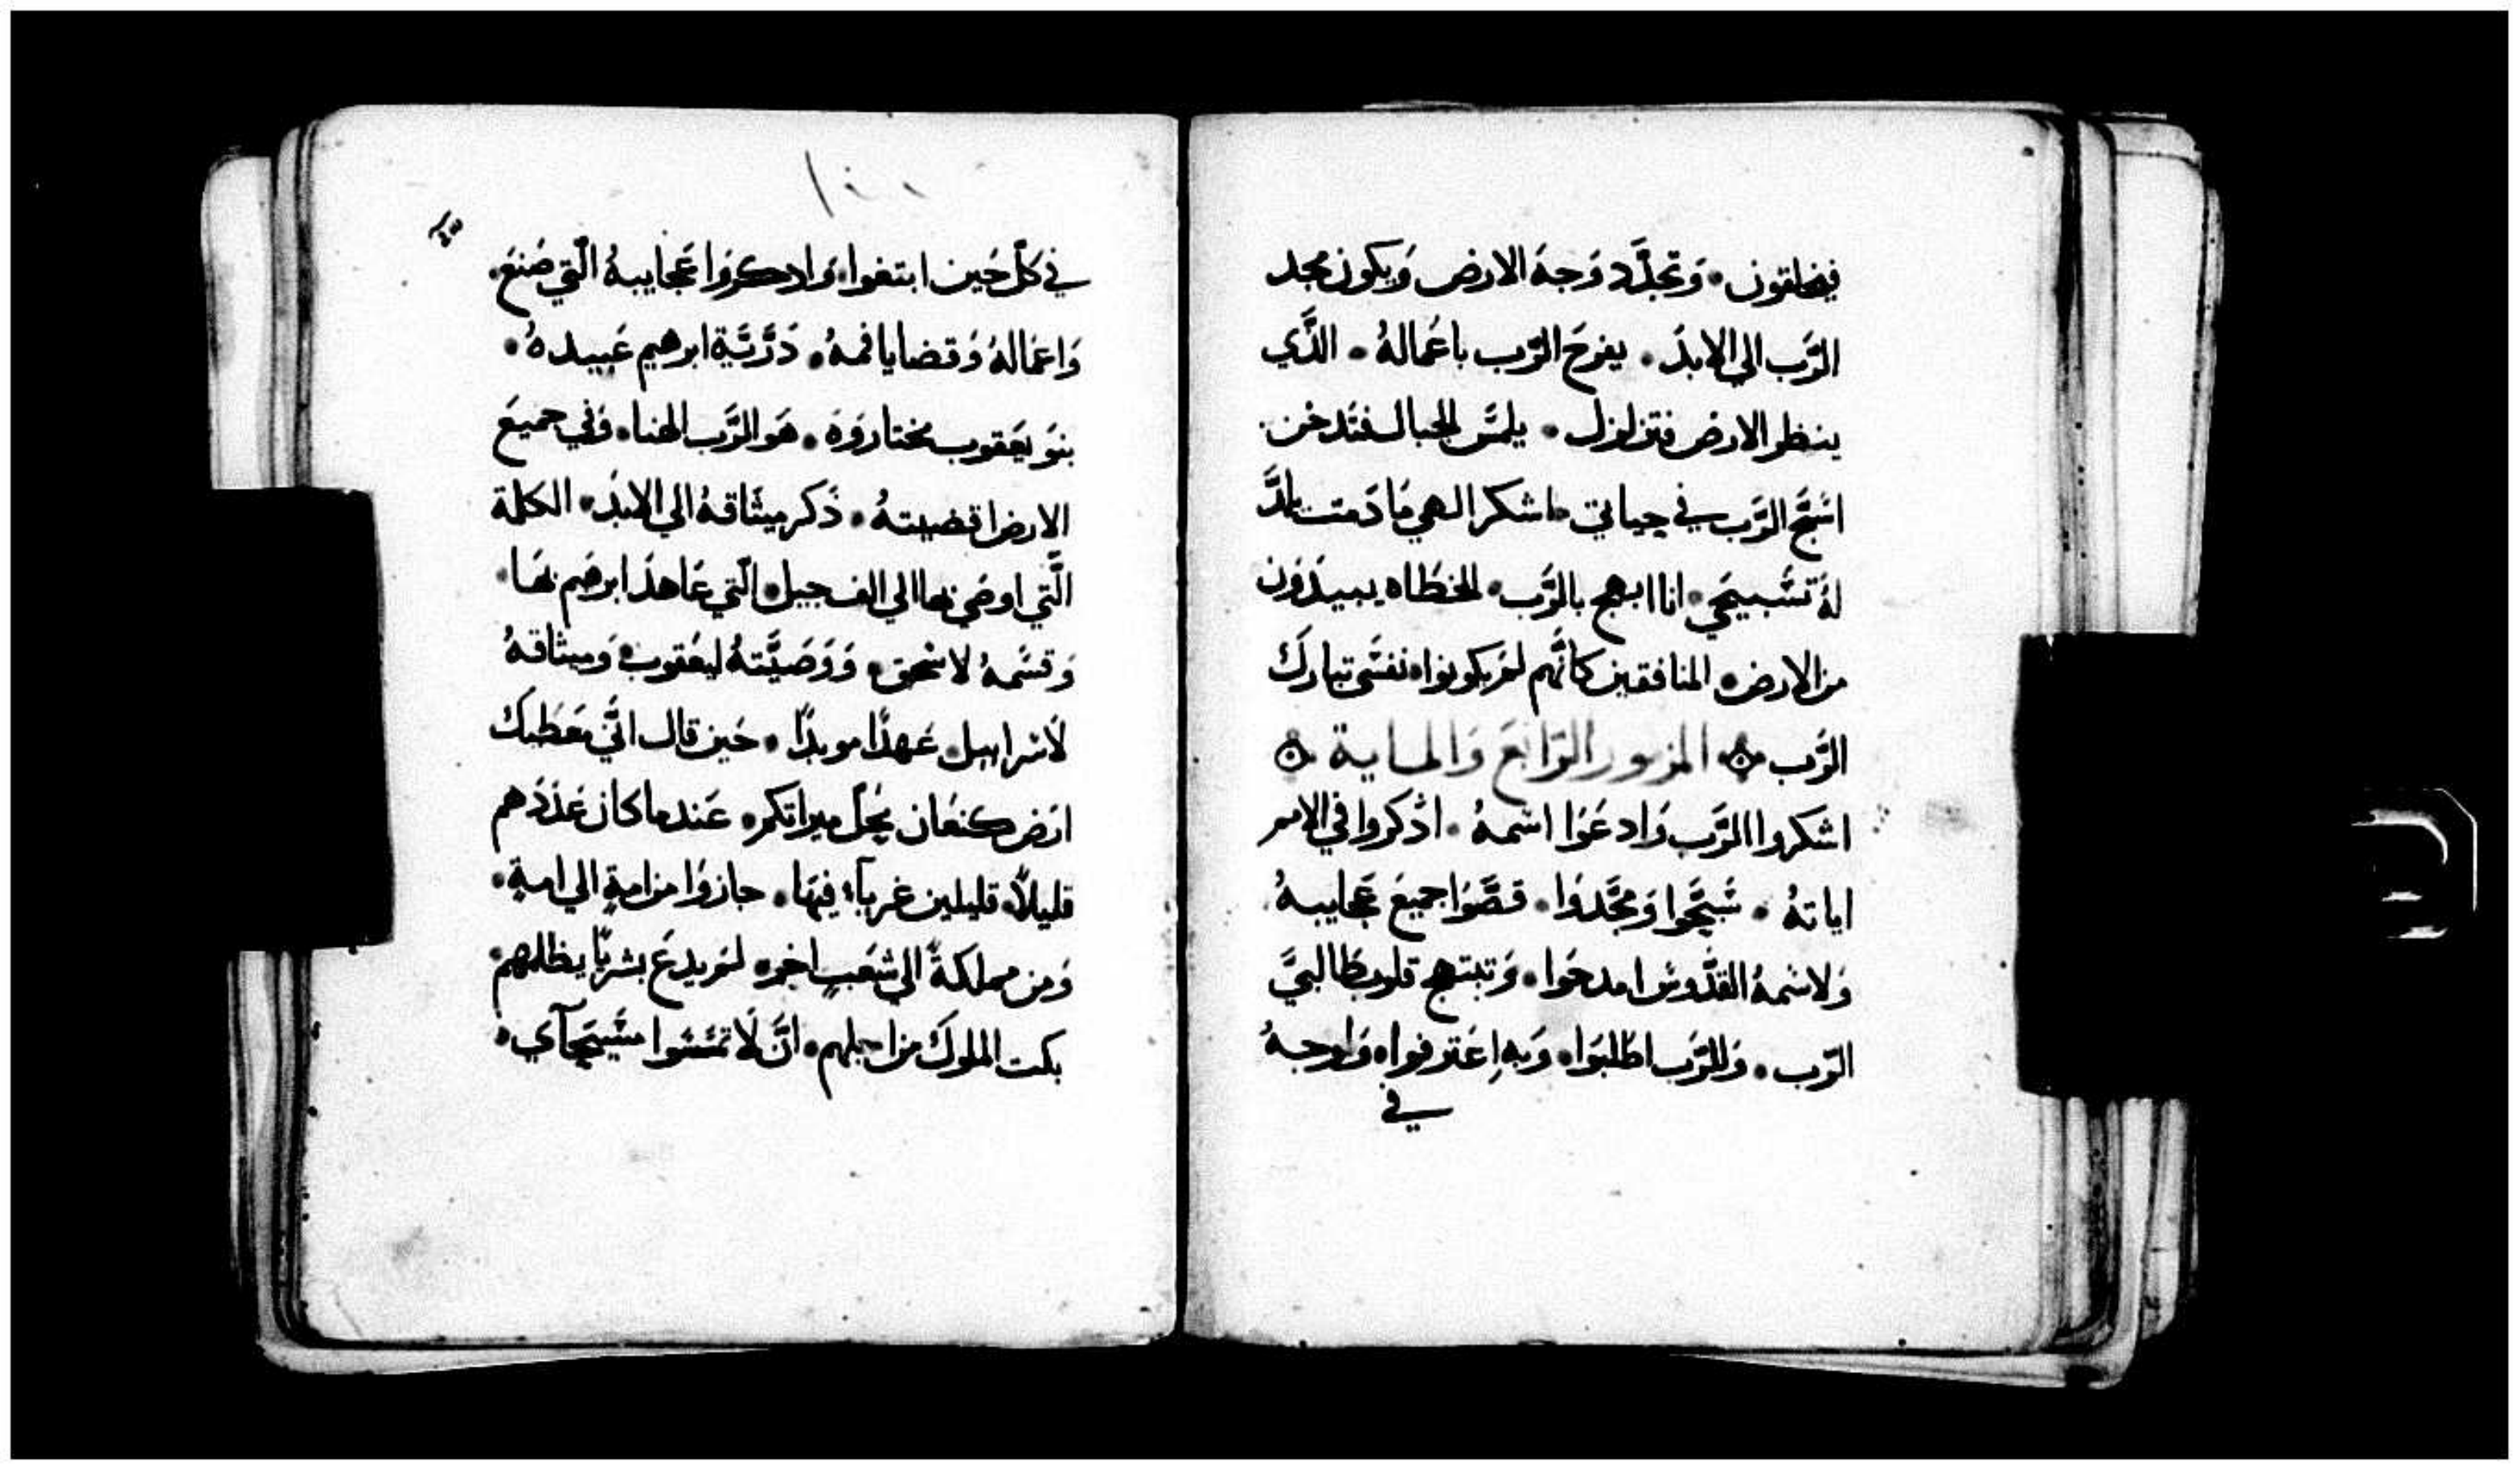 فيخلقون • وَتجدَّد وَجهَ الارض وَيكون مجد
الرَّب الي الابدَ • يفرحَ الرَّب باعَمالهُ • الذَّي
ينظر الارض فتزلزل • يلمسَّ الجبال فتَدخن •
اسَبَّح الرَّب في حياتي • اشكر الهي مَا دَمت تلدَّ
لهُ تسَّبيحَي • انا ابهج بالرَّب • الخطَاه يبيدَون
من الارض • المنافقين كانَّهم لمَ يكونوا • نفسَّي تبارك
الرَّب المزمور الرَّابعَ وَالماية
اشكروا الرَّب وَادعَوا اسَمهُ • اذكروا في الامم
اياتهُ • سَبَّحوا وَمجَّدوَا • قصَّوَا جميعَ عَجايبهُ
وَلاسَمهُ القدَّوسَ امدحَوا • وَتبتهج قلوب طَالبيَّ
الرَّب • وَللرَّب اطَلبوَا • وَبهِ اعَترفوا • وَاوجهُ
في
في كلّ حَين ابتغوا • وَادكروَا عَجايبهُ الّتي صَنعَ •
وَاعَمالهُ وَقضايا فمهُ • ذَرَّيَّة ابرهيم عَبيدهُ •
بنوَ يعَقوب مختاروَه • هَو الرَّب الهنا • وَفي جميعَ
الارض اقضيتهُ • ذَكر ميثَاقهُ الي الابدَ • الكلمة
الَّتي اوصَي بها الي الف جيل • الّتي عَاهدَ ابرهيم بهَا •
وَقسَمهُ لاسَحق • وَوَصَيَّتهُ ليعَقوب • وَميثاقهُ
لاسَراييل عَهدًا موبدًا • حَين قال انَّي معَطيك
ارَض كنعَان بحَبل ميراثكم • عَندما كان عَدَدَهم
قليلاً • قليلين غربآء فيهَا • جازوَا من امةٍ الي امةٍ •
وَمن مملكةً الي شعَبٍ اخر • لمَ يدعَ بشريًّا يظلمهم •
بكت الملوكَ من اجلهم • انَّ لَا تمسَسَوا مسَّيحَآي •